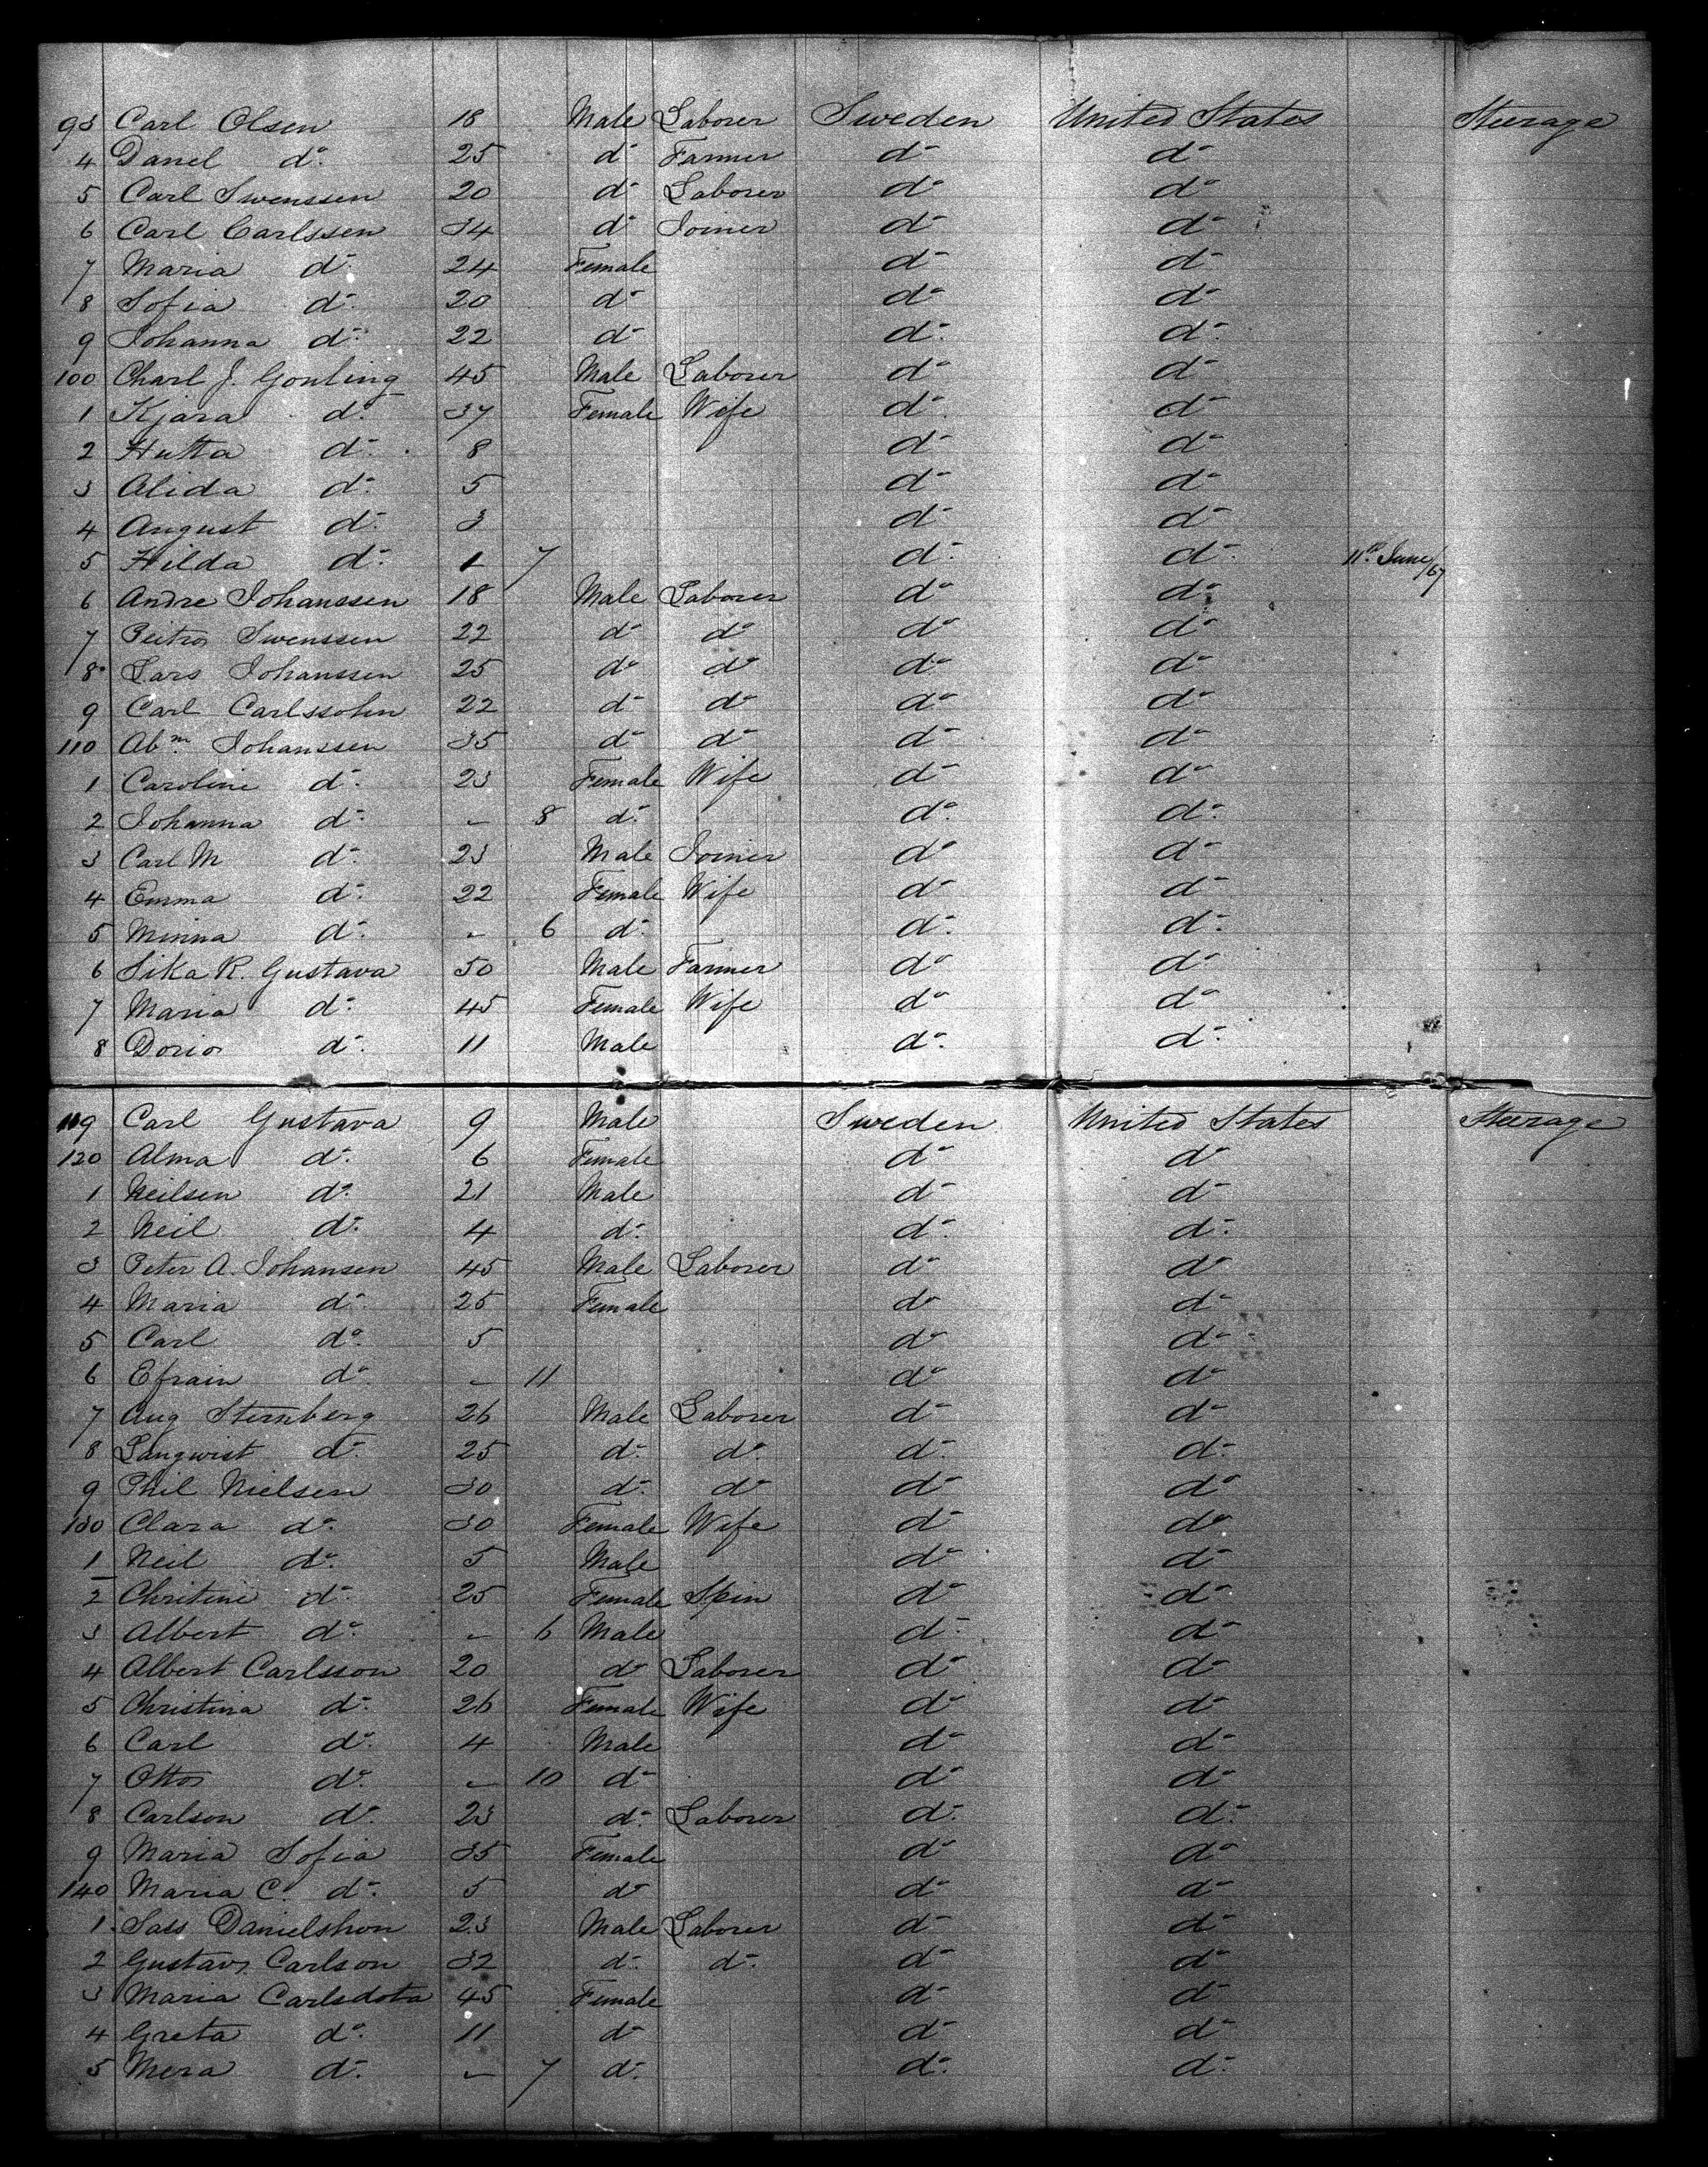 93 Carl Olsen 18 Male Laborer Sweden United States Steerage
4 Danel do 25 do Farmer do do
5 Carl Swenssen 20 do Laborer do do
6 Carl Carlssen 34 do Joiner do do
7 Maria do 24 Female do do
8 Sofia do 20 do do do
9 Johanna do 22 do do do
100 Charl J. Gonling 45 Male Laborer do do
1 Kjara do 37 Female Wife do do
2 Hutta do 8 do do
3 Alida do 5 do do
4 August do 3 do do
5 Hilda do 1 7 do do 11th June/67
6 Andre Johanssen 18 Male Laborer do do
7 Peitro Swenssen 22 do do do do
8 Lars Johanssen 25 do do do do
9 Carl Carlssohn 22 do do do do
110 Abm. Johanssen 35 do do do do
1 Caroline do 23 Female Wife do do
2 Johanna do - 8 do do do
3 Carl M do 23 Male Joiner do do
4 Emma do 22 Female Wife do do
5 Minna do - 6 do do do
6 Sika R. Gustava 50 Male Farmer do do
7 Maria do 45 Female Wife do do
8 Dorio do 11 Male do do
119 Carl Gustava 9 Male Sweden United States Steerage
120 Alma do 6 Female do do
1 Neilsen do 21 Male do do
2 Neil do 4 do do do
3 Peter A. Johansen 45 Male Laborer do do
4 Maria do 25 Female do do
5 Carl do 5 do do
6 Efrain do - 11 do do
7 Aug Sternberg 26 Male Laborer do do
8 Langwist do 25 do do do do
9 Phil Nielsen 30 do do do do
130 Clara do 30 Female Wife do do
1 Neil do 5 Male do do
2 Chritine do 25 Female Spin do do
3 Albert do - 6 Male do do
4 Albert Carlsson 20 do Laborer do do
5 Christina do 26 Female Wife do do
6 Carl do 4 Male do do
7 Otto do - 10 do do do
8 Carlson do 23 do Laborer do do
9 Maria Sofia 35 Female do do
140 Maria C. do 5 do do do
1 Sass Danielshon 23 Male Laborer do do
2 Gustav Carlson 32 do do do do
3 Maria Carlsdota 45 Female do do
4 Greta do 11 do do do
5 Mera do - 7 do do do